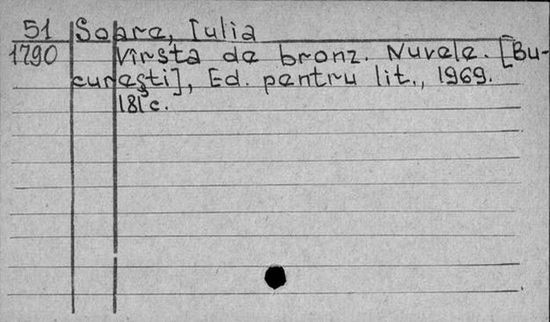 51 Soare, Iulia
1790 Vîrsta de bronz. Nuvele. [Bu-
cureşti], Ed. pentru lit., 1969.
181 c.